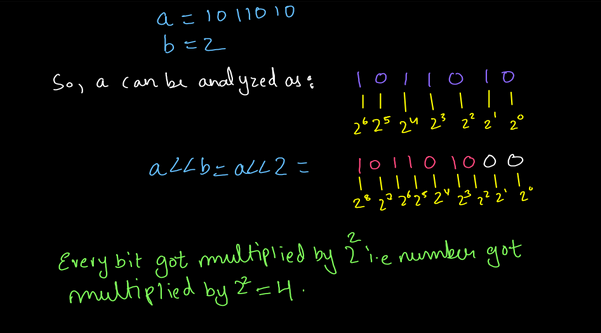 a = 1011010
b = 2
So, a can be analyzed as: 1 0 1 1 0 1 0
2⁶ 2⁵ 2⁴ 2³ 2² 2¹ 2⁰
a<<b = a<<2 = 1 0 1 1 0 1 0 0 0
2⁸ 2⁷ 2⁶ 2⁵ 2⁴ 2³ 2² 2¹ 2⁰
Every bit got multiplied by 2² i.e number got
multiplied by 2² = 4.